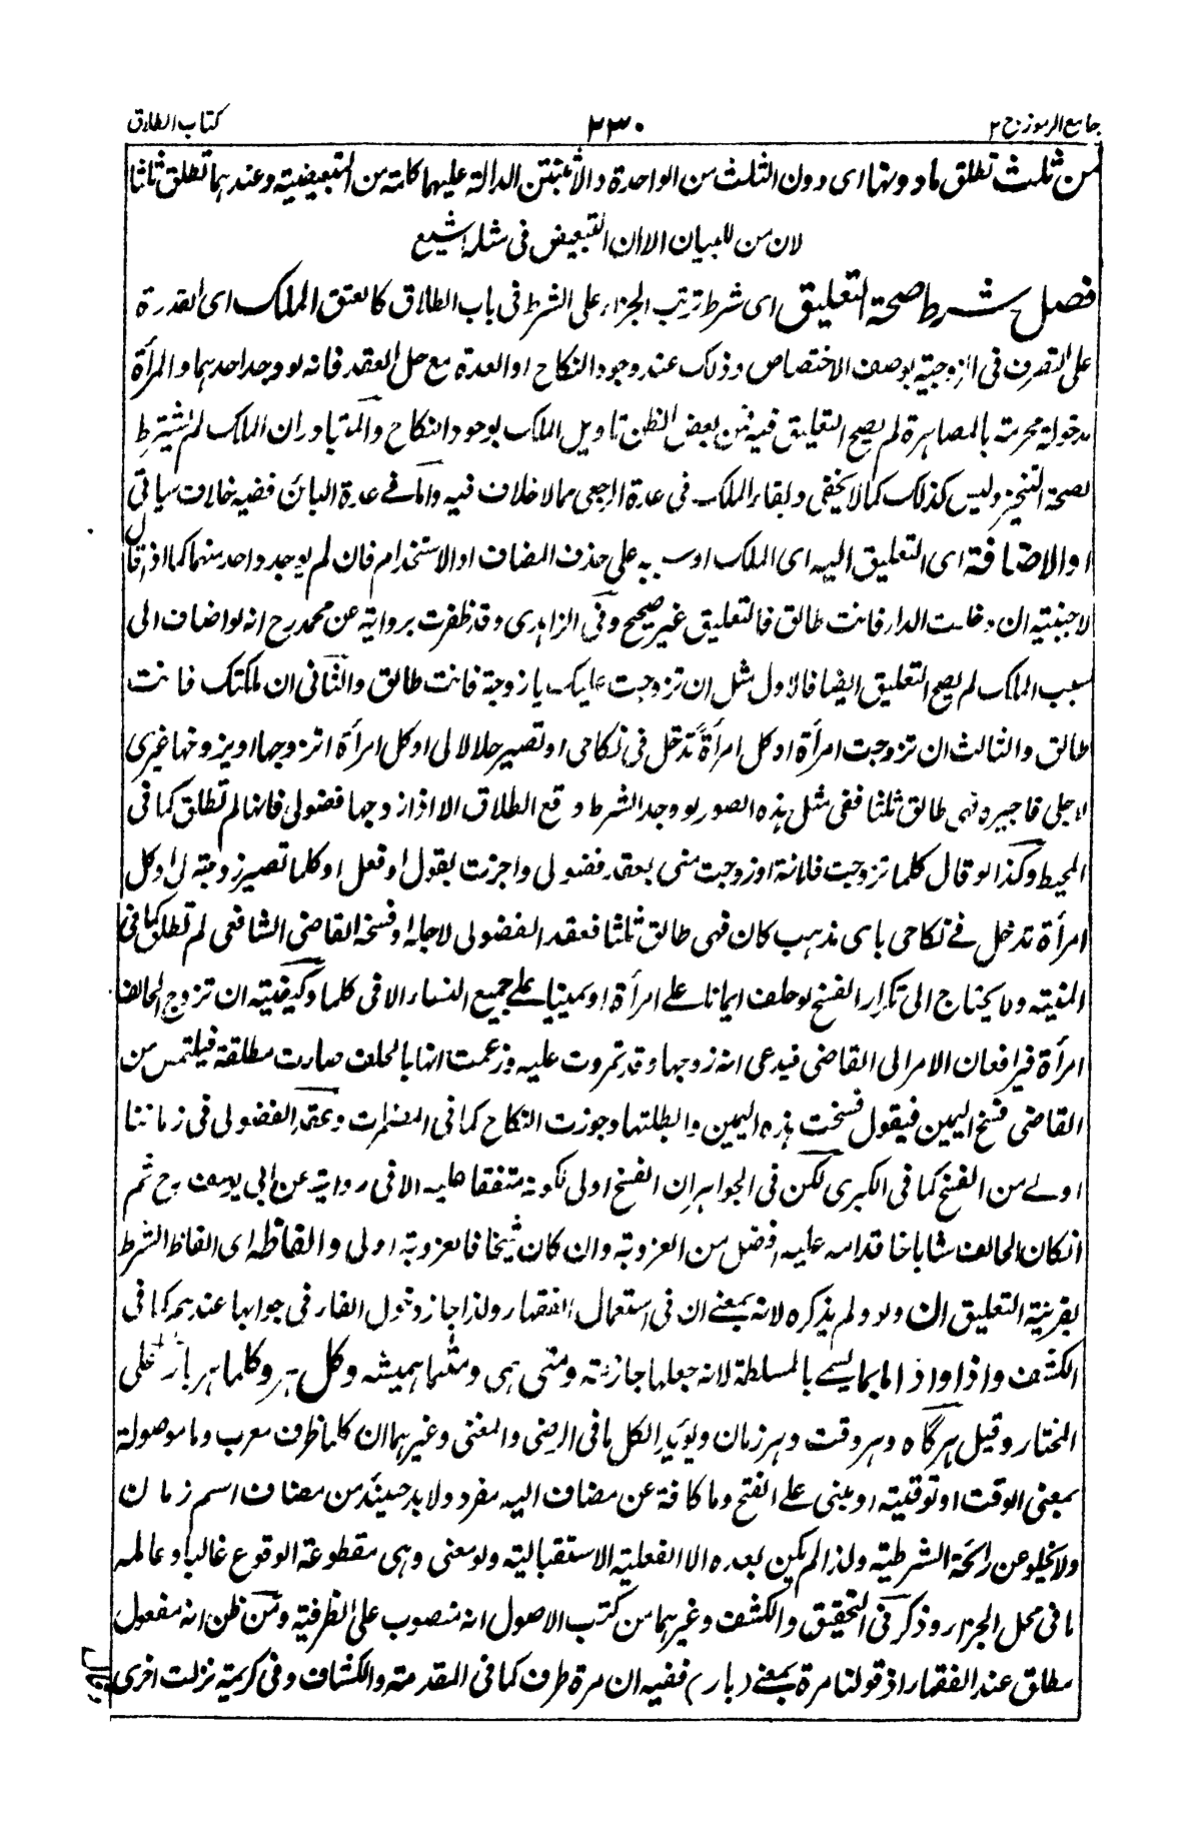 جامع الرموز ج ٢ ٢٣٠ كتاب الطلاق
من ثلث تطلق مادونها اى دون الثلث من الواحدة والاثنتين الدالة عليهما كلمة من التبعيضية وعندهما تطلق ثلثا
لان من للبيان الا ان التبعيض فى مثله اشيع
فصل شرط صحة التعليق اى شرط ترتب الجزاء على الشرط فى باب الطلاق كالعتق الملك اى القدرة
على التصرف فى الزوجية بوصف الاختصاص وذلك عند وجود النكاح او العدة مع حل العقد فانه لو وجد احدهما والمرأة
مدخولة محرمة بالمصاهرة لم يصح التعليق فيه فمن بعض الظن تاويل الملك بوجود النكاح والمتبادر ان الملك لم يشترط
لصحة التنجيز وليس كذلك كما لا يخفى وبقاء الملك فى عدة الرجعى مما لا خلاف فيه واما فے عدة البائن ففيه خلاف سياتى
او الاضافة اى التعليق اليه اى الملك او سببه على حذف المضاف او الاستخدام فان لم يوجد واحد منهما كما اذا قال
لاجنبية ان دخلت الدار فانت طالق فالتعليق غير صحيح وفى الزاهدى وقد ظفرت برواية عن محمد رح انه لو اضاف الى
سبب الملك لم يصح التعليق ايضا فالاول مثل ان تزوجت عليك يا زوجة فانت طالق والثانى ان ملكتك فانت
طالق والثالث ان تزوجت امرأة او كل امرأة تدخل فى نكاحى او تصير حلالا لى او كل امرأة اتزوجها او يزوجها غيرى
لاجلى فاجيزه فهى طالق ثلثا ففى مثل هذه الصور لو وجد الشرط وقع الطلاق الا اذا زوجها فضولى فانها لم تطلق كما فى
المحيط وكذا لو قال كلما تزوجت فلانة او زوجت منى بعقد فضولى واجزت بقول او فعل او كلما تصير زوجة لى او كل
امرأة تدخل فے نكاحى باى مذهب كان فهى طالق ثلثا فعقد الفضولى لاجله او فسخه القاضى الشافعى لم تطلق كما فى
المنية ولا يحتاج الى تكرار الفسخ لو حلف ايمانا على امرأة او يمينا على جميع النساء الا فى كلما وكيفيته ان تزوج الحالف
امرأة فيرافعان الامر الى القاضى فيدعى انه زوجها وقد تمردت عليه وزعمت انها بالحلف صارت مطلقة فيلتمس من
القاضى فسخ اليمين فيقول فسخت هذه اليمين وابطلتها وجوزت النكاح كما فى المضمرات وعقد الفضولى فى زماننا
اولے من الفسخ كما فى الكبرى لكن فى الجواهر ان الفسخ اولى لكونه متفقا عليه الا فى رواية عن ابى يوسف رح ثم
ان كان الحالف شابا فاقدامه عليه افضل من العزوبة وان كان شيخا فالعزوبة اولى والفاظه اى الفاظ الشرط
بقرينة التعليق ان ولو ولم يذكره لانه بمعنے ان فى استعمال الفقهاء ولذا جاز دخول الفاء فى جوابها عندهم كما فى
الكشف واذا واذ اما بما يسمے بالمسلطة لانه جعلها جازمة ومتى هى ومتما هميشه وكل هر وكلما هر بار على
المختار وقيل هرگاه وهر وقت وهر زمان ويؤيد الكل ما فى الرضى والمغنى وغيرهما ان كلما ظرف معرب وما موصولة
بمعنى الوقت او توقيتية او مبنى على الفتح وما كافة عن مضاف اليه مفرد ولا بد حينئذ من مضاف اسم زمان
ولا يخلو عن رائحة الشرطية ولذا لم يكن بعده الا الفعلية الاستقبالية ولو معنى وهى مقطوعة الوقوع غالبا وعامله
ما فى محل الجزاء وذكر فى التحقيق والكشف وغيرهما من كتب الاصول انه منصوب على الظرفية ومن ظن انه مفعول
مطلق عند الفقهاء اذ قولنا مرة بمعنے (بار) ففيه ان مرة ظرف كما فى المقدمة والكشاف وفى كريمة نزلت اخرى